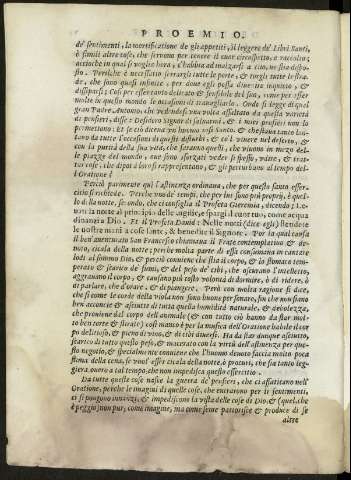 PROEMIO.
de' sentimenti, la mortificatione de gli appetiti, il leggere de' Libri Santi,
& simili altre cose, che servono per tenere il cuor circospetto, & raccolto;
acciochè in qual si voglia hora, c'habbia ad inalzarsi a Dio, ne stia dispo-
sto. Perilche è necessario serrargli tutte le porte, & torgli tutte le stra-
de, che sono quasi infinite, per dove egli possa divenire inquieto, &
dissiparsi; Così per essere tanto delicato & sensitivo dei suoi, come per esser
molte in questo mondo le occasioni di travagliarlo. Onde si legge di quel
gran Padre Antonio che vedendosi una volta assaltato da questa varietà
di pensieri, disse: Desidero Signor di salvarmi, & i miei pensieri non lo
permettono. Et se ciò diceva un huomo così Santo, & che stava tanto lun-
tano da tutte l'occasioni di questi disturbi, & col vivere nel deserto, &
con la purità della sua vita, che faranno quelli, che vivono in mezo del-
le piazze del mondo, & sono sforzati veder sì spesso, udire, & trat-
tar cose, che dipoi a loro si rappresentano, & gli perturbano al tempo del-
l'Oratione?
Perciò parimente qui l'astinenza ordinaria, che per questo santo esser-
citio si richiede. Perche uno de' tempi, che per lui sono più proprij, è quel-
lo della notte, secondo, che ci consiglia il Profeta Gieremia, dicendo; Le-
vati la notte al principio delle vigilie, & spargi il cuor tuo, come acqua
dinanzi a Dio. Et il Profeta David: Nelle notti (dice egli) stendete
le vostre mani a cose sante, & benedite il Signore. Per la qual causa
il ben'aventurato San Francesco chiamava il Frate contemplativo & de-
moro, cicala della notte; perche molta parte di essa consumava in cantare
lodi al sommo Dio, & perciò conviene che stia il corpo, & lo stomaco tempe-
rato & scarico de' fumi, & del peso de' cibi, che oscurano l'intelletto,
aggravano il corpo, & causano più tosto volontà di dormire, ò di ridere, ò
di parlare, che d'orare, & di piangere. Però con molta ragione si dice,
che sì come le corde della viola non sono buone per sonare, se non sono
ben acconcie & asciutte di tutta quella humidità naturale, & debolezza,
che proviene dal corpo dell'animale (& con tutto ciò hanno da star mol-
to ben torte & stirate) così manco è per la musica dell'Oratione habile il cor-
po delitioso, & pieno di vino, & di cibi diversi. Ha da star dunque asciutto,
scarico di tutto questo peso, & macerato con la virtù dell'astinenza per que-
sto negotio, & specialmente conviene che l'huomo devoto faccia molto poca
stima della cena, se vuol'esser cicala della notte, ò potarsi, che sia tanto leg-
giera, overo a tal tempo, che non impedisca questo essercitio.
Da tutte queste cose nasce la guerra de' pensieri, che ci assaltano nell'
Oratione, perche le imagini di quelle cose, che entrarono per li sentimenti,
ci si pongono innanzi, & impediscono la vista delle cose di Dio, & (quel, che
è peggio) non pur, come imagine, ma come seme partorisce & produce di se
altre